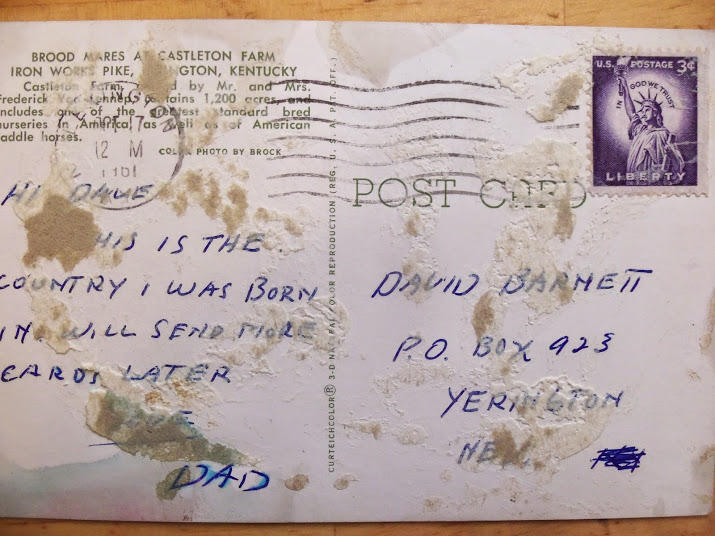 BROOD MARES AT CASTLETON FARM
IRON WORKS PIKE, KENTUCKY
Castleton Farm, by Mr. and Mrs.
Frederick contains 1,200 acres and
includes one of the greatest standard bred
nurseries in America, as well as of American
saddle horses.
COLOR PHOTO BY BROCK
12 M
HI DAVE
THIS IS THE
COUNTRY I WAS BORN
IN. WILL SEND MORE
CARDS LATER
LOVE
DAD
CURTEICHCOLOR® 3-D NATURAL COLOR REPRODUCTION (REG. U.S.A. PAT. OFF.)
POST CARD
U.S. POSTAGE 3¢
IN GOD WE TRUST
LIBERTY
DAVID BARNETT
P.O. BOX 923
YERINGTON
NEV.